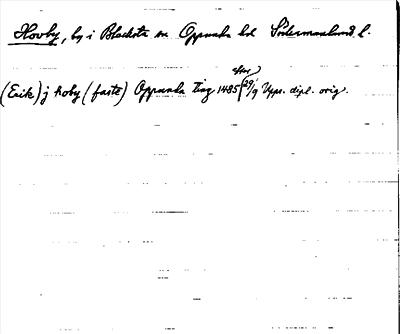 Hovby, by i Blacksta sn Oppunda hd Södermanland l.
efter
(Erik) j hoby (faste) Oppunda ting 1485 (29/9 Upps. dipl. orig.